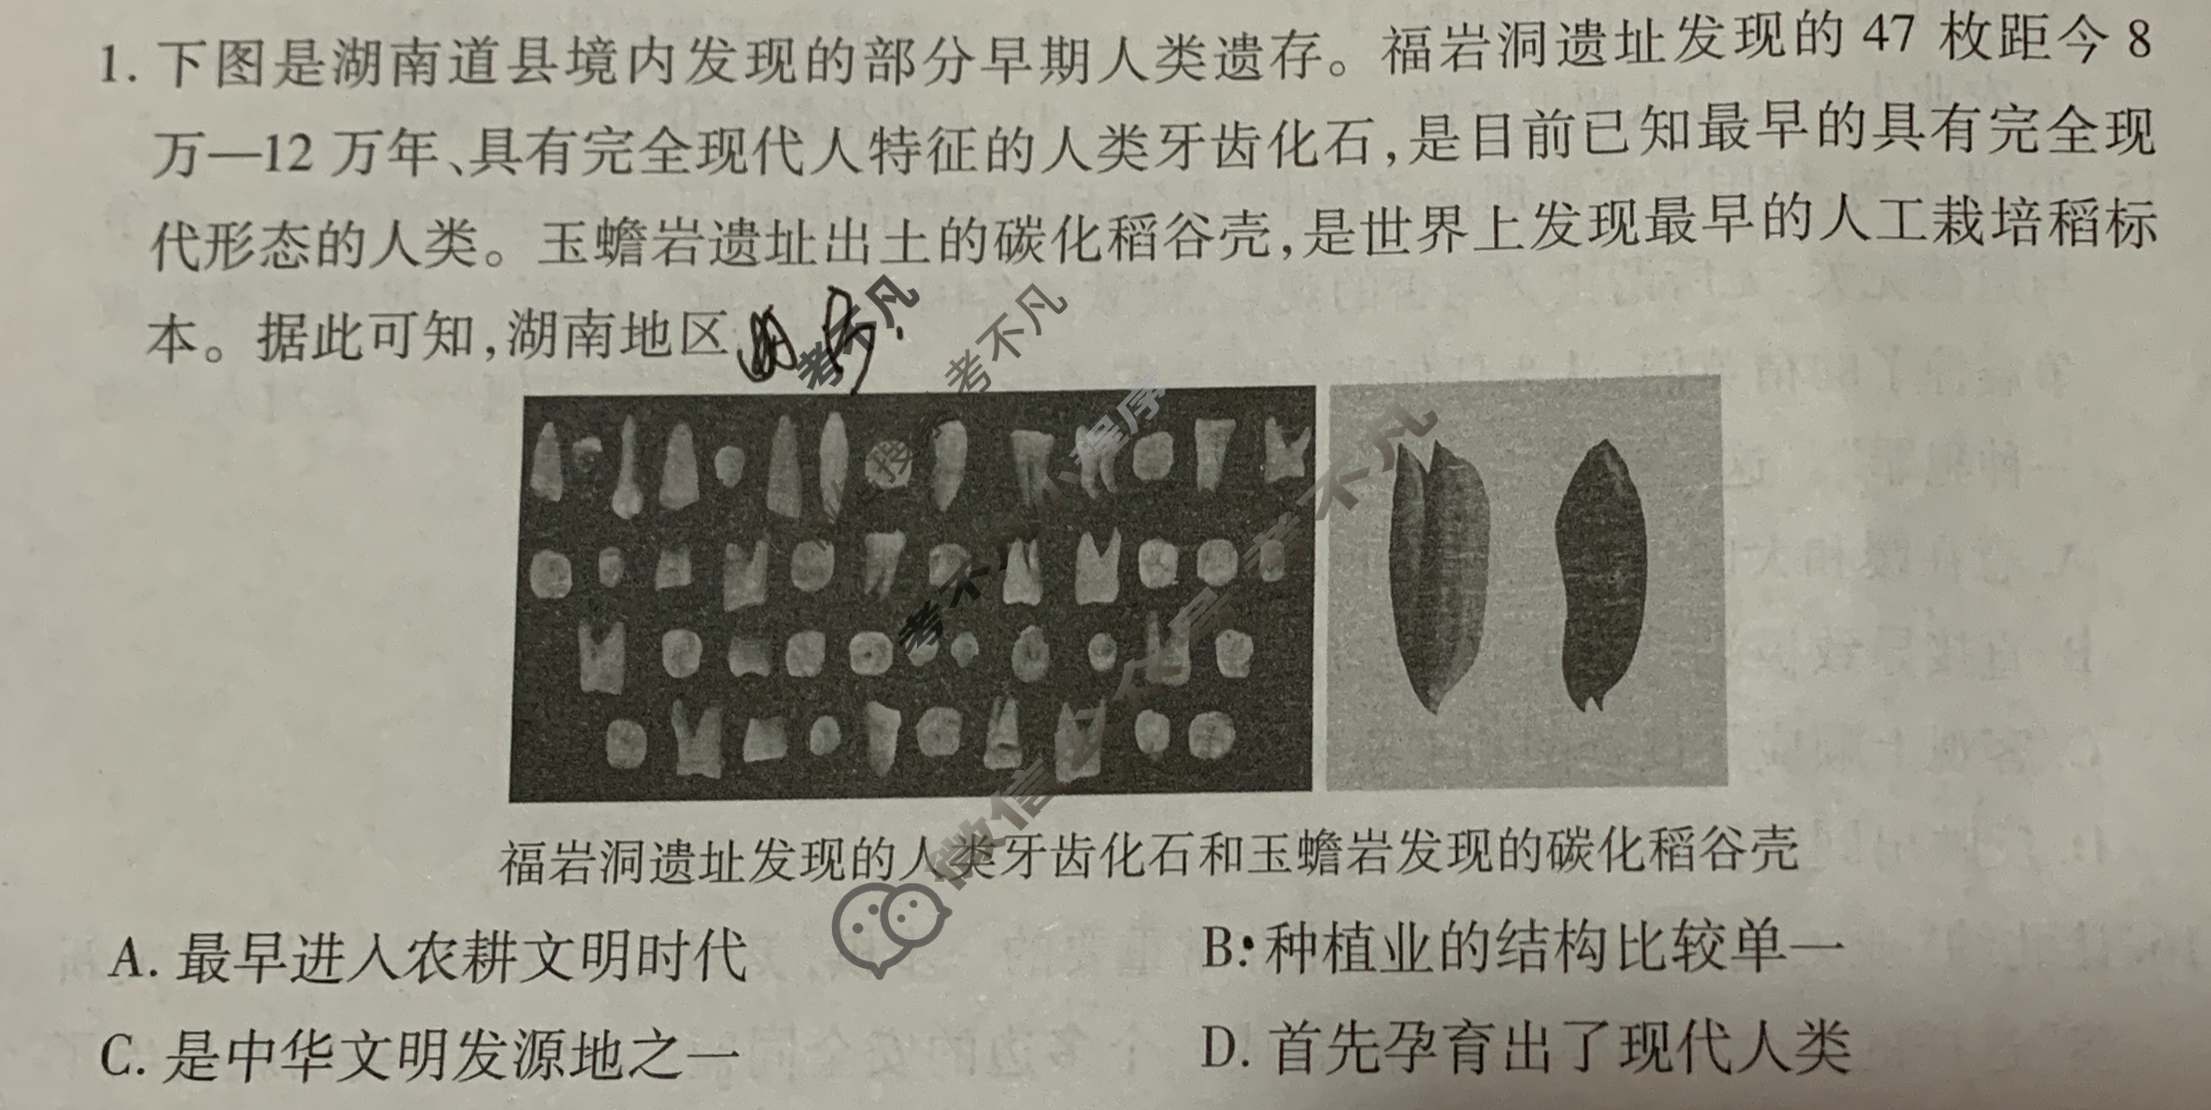 1. 下图是湖南道县境内发现的部分早期人类遗存。福岩洞遗址发现的 47 枚距今 8
万—12 万年、具有完全现代人特征的人类牙齿化石,是目前已知最早的具有完全现
代形态的人类。玉蟾岩遗址出土的碳化稻谷壳,是世界上发现最早的人工栽培稻标
本。据此可知,湖南地区
考不凡
考不凡
搜 考不凡小程序
微信公众号 考不凡
福岩洞遗址发现的人类牙齿化石和玉蟾岩发现的碳化稻谷壳
A. 最早进入农耕文明时代
B. 种植业的结构比较单一
C. 是中华文明发源地之一
D. 首先孕育出了现代人类